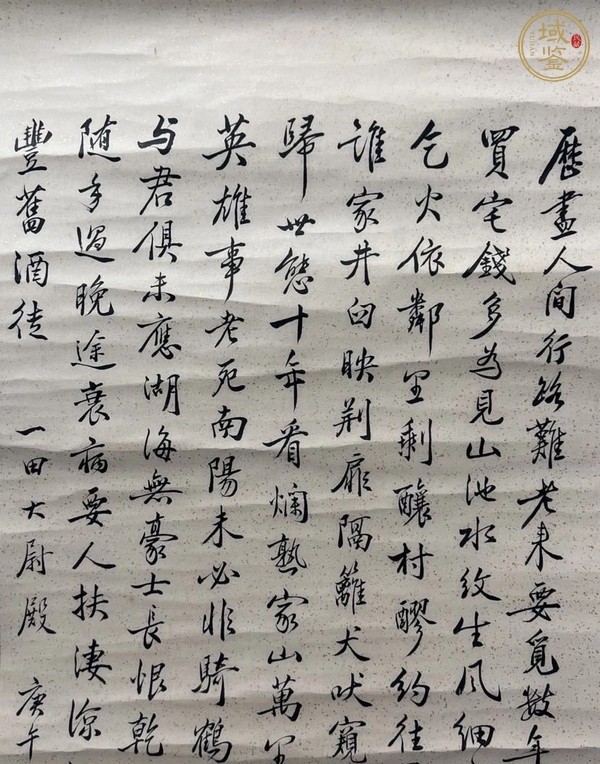 歷盡人间行路難老来要覓数年
買宅錢多為見山池水纹生风细
乞火依鄰里剩釀村醪约往
誰家井臼映荆扉隔籬犬吠窺
歸世態十年看爛熟家山萬里
英雄事老死南陽未必非騎鶴
与君俱未應湖海無豪士長恨乾
随手過晚途衰病要人扶淒涼
豐舊酒徒
一田大尉殿 庚午
域鉴
YUJIAN